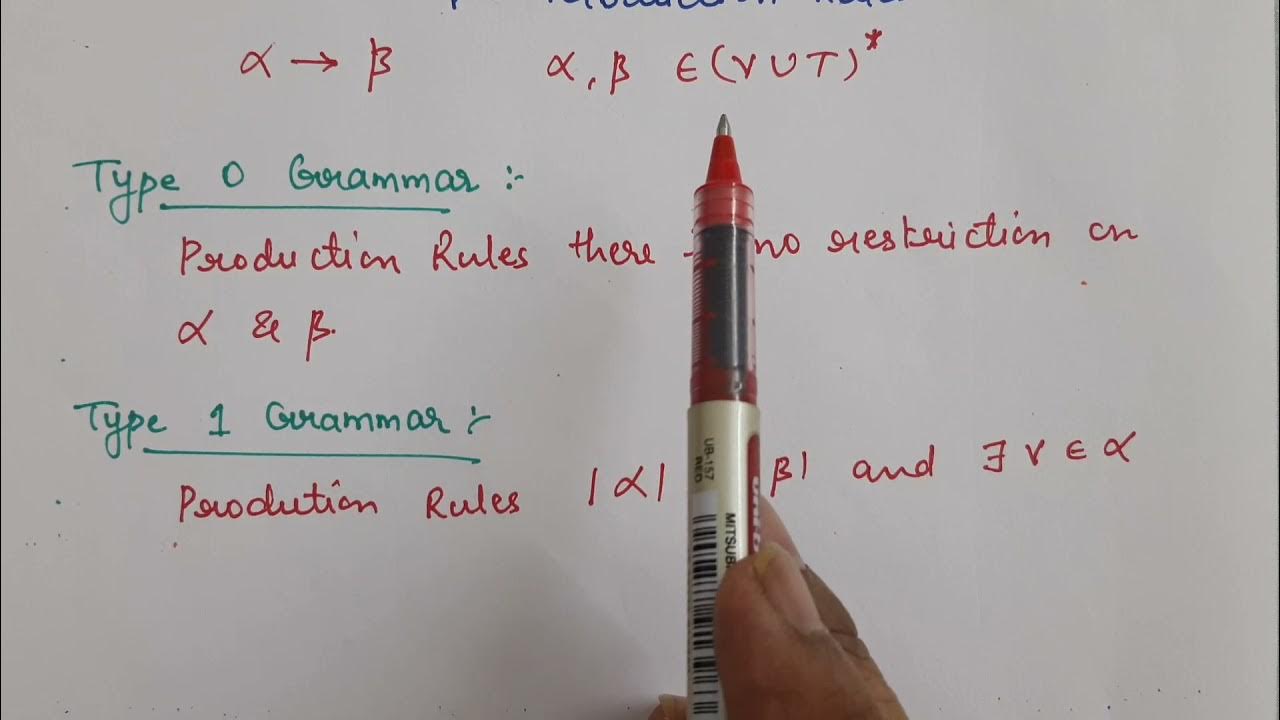 α → β α, β ∈ (V ∪ T)*
Type 0 Grammar :-
Production Rules there no restriction on
α & β.
Type 1 Grammar :-
Prodution Rules |α| β| and ∃ V ∈ α
UB-157
RED
MITSUB
uni